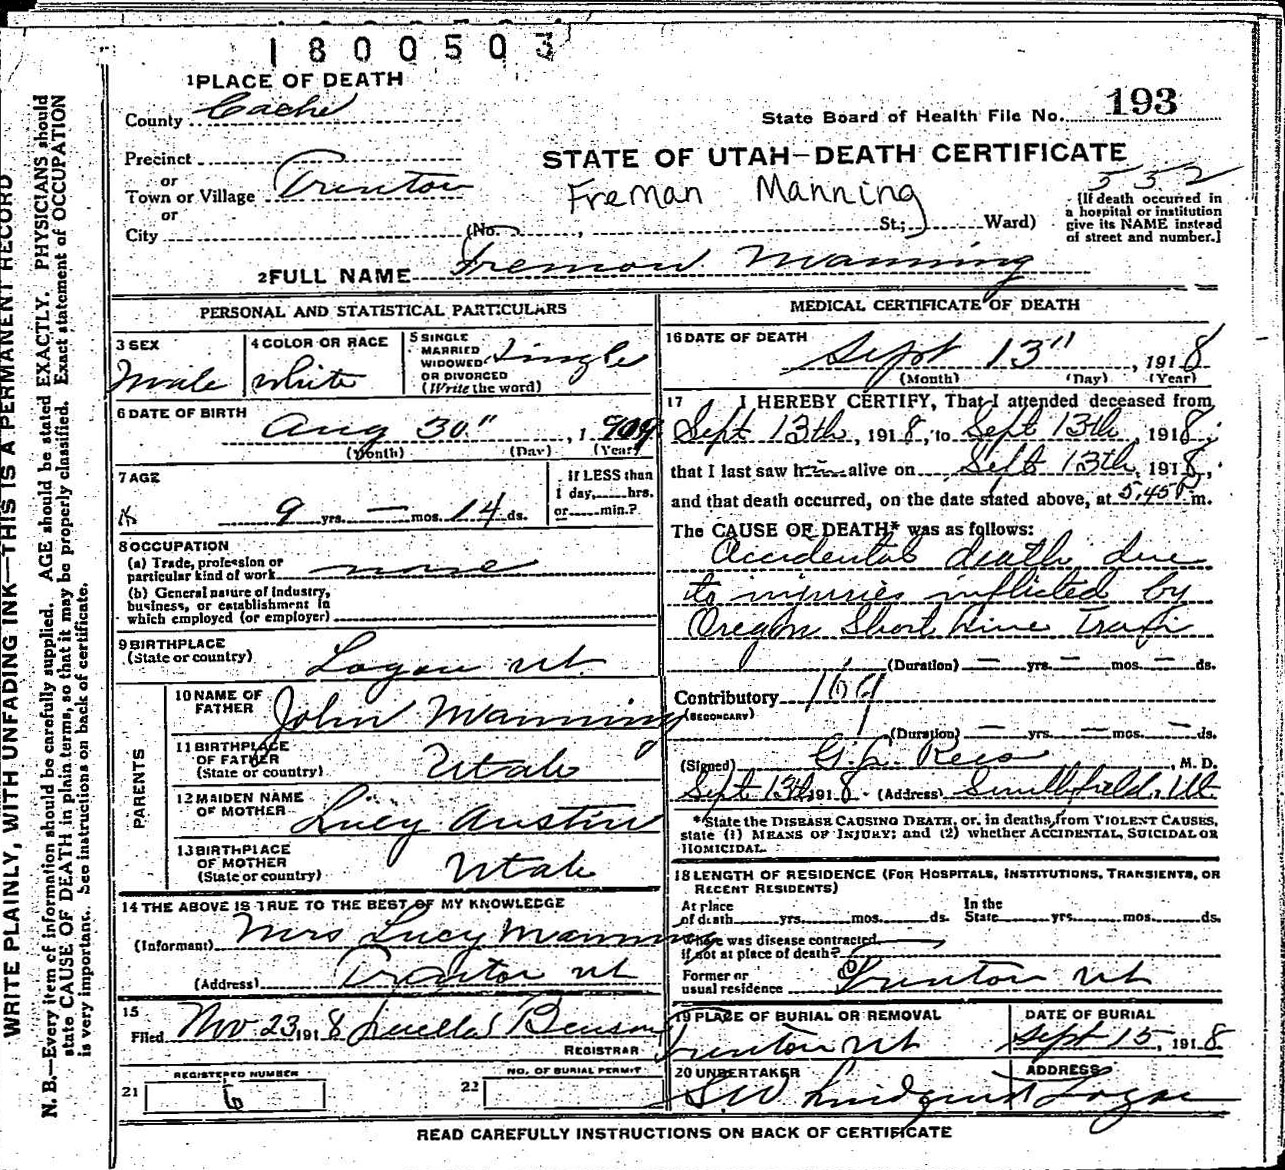 1800503
1 PLACE OF DEATH
County Cache
State Board of Health File No. 193
Precinct
or
Town or Village Trenton
or
City
STATE OF UTAH—DEATH CERTIFICATE
532
Freman Manning
(No. , St.; Ward)
[If death occurred in
a hospital or institution
give its NAME instead
of street and number.]
2 FULL NAME Fremon Manning
PERSONAL AND STATISTICAL PARTICULARS
3 SEX
Male
4 COLOR OR RACE
white
5 SINGLE
MARRIED
WIDOWED
OR DIVORCED
(Write the word)
Single
6 DATE OF BIRTH
Aug 30", 1909
(Month) (Day) (Year)
7 AGE
9 yrs. — mos. 14 ds.
If LESS than
1 day, hrs.
or min.?
8 OCCUPATION
(a) Trade, profession or
particular kind of work none
(b) General nature of Industry,
business, or establishment in
which employed (or employer)
9 BIRTHPLACE
(State or country) Logan Ut.
PARENTS
10 NAME OF
FATHER John Manning
11 BIRTHPLACE
OF FATHER
(State or country) Utah
12 MAIDEN NAME
OF MOTHER Lucy Austin
13 BIRTHPLACE
OF MOTHER
(State or country) Utah
14 THE ABOVE IS TRUE TO THE BEST OF MY KNOWLEDGE
(Informant) Mrs Lucy Manning
(Address) Trenton Ut
15
Filed Nov 23 1918 Luella Benson
REGISTRAR
REGISTERED NUMBER
21 6
NO. OF BURIAL PERMIT
22
MEDICAL CERTIFICATE OF DEATH
16 DATE OF DEATH
Sept 13", 1918
(Month) (Day) (Year)
17 I HEREBY CERTIFY, That I attended deceased from
Sept 13th, 1918, to Sept 13th, 1918,
that I last saw him alive on Sept 13th, 1918,
and that death occurred, on the date stated above, at 5.45 P m.
The CAUSE OF DEATH* was as follows:
Accidental death due
to injuries inflicted by
Oregon Short Line Train
(Duration) — yrs. — mos. — ds.
Contributory 169
(SECONDARY)
(Duration) — yrs. — mos. — ds.
(Signed) G.L. Rees, M. D.
Sept 13th, 1918 (Address) Smithfield, Ut
*State the DISEASE CAUSING DEATH, or, in deaths from VIOLENT CAUSES,
state (1) MEANS OF INJURY; and (2) whether ACCIDENTAL, SUICIDAL OR
HOMICIDAL.
18 LENGTH OF RESIDENCE (FOR HOSPITALS, INSTITUTIONS, TRANSIENTS, OR
RECENT RESIDENTS)
At place
of death yrs. mos. ds.
In the
State yrs. mos. ds.
Where was disease contracted,
if not at place of death?
Former or
usual residence Trenton Ut
19 PLACE OF BURIAL OR REMOVAL
Trenton Ut
DATE OF BURIAL
Sept 15, 1918
20 UNDERTAKER
S W Lindquist
ADDRESS
Logan
READ CAREFULLY INSTRUCTIONS ON BACK OF CERTIFICATE
WRITE PLAINLY, WITH UNFADING INK—THIS IS A PERMANENT RECORD
N. B.—Every item of information should be carefully supplied. AGE should be stated EXACTLY. PHYSICIANS should
state CAUSE OF DEATH in plain terms, so that it may be properly classified. Exact statement of OCCUPATION
is very important. See instructions on back of certificate.